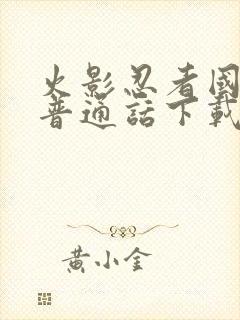 火影忍者國
普通話下載
黃小金